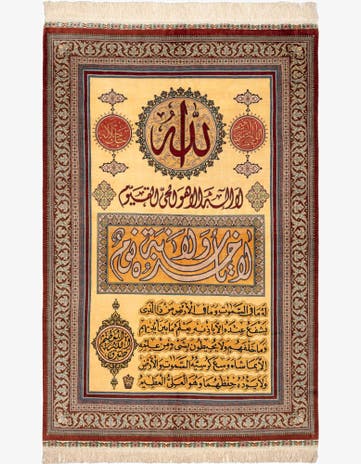 الله
لا اله الا هو الحى القيوم
لا تأخذه سنة ولا نوم
له ما فى السموات وما فى الأرض من ذا الذى
يشفع عنده إلا بإذنه يعلم ما بين أيديهم
وما خلفهم ولا يحيطون بشىء من علمه
إلا بما شاء وسع كرسيه السموات والأرض
ولا يؤده حفظهما وهو العلى العظيم